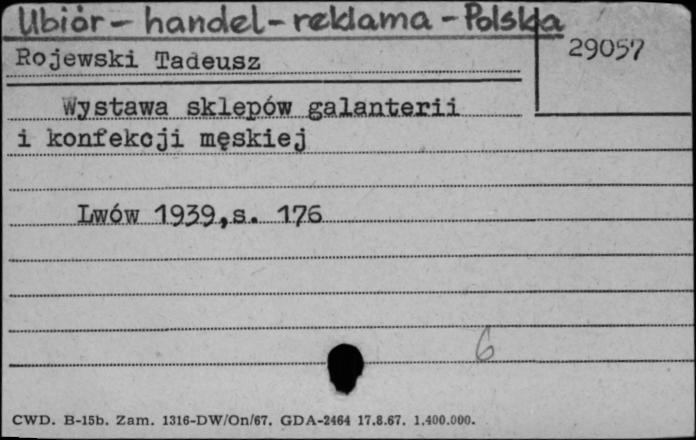 Ubiór - handel - reklama - Polska
29057
Rojewski Tadeusz
Wystawa sklepów galanterii
i konfekcji męskiej
Lwów 1939, s. 176
6
CWD. B-15b. Zam. 1316-DW/On/67. GDA-2464 17.8.67. 1.400.000.